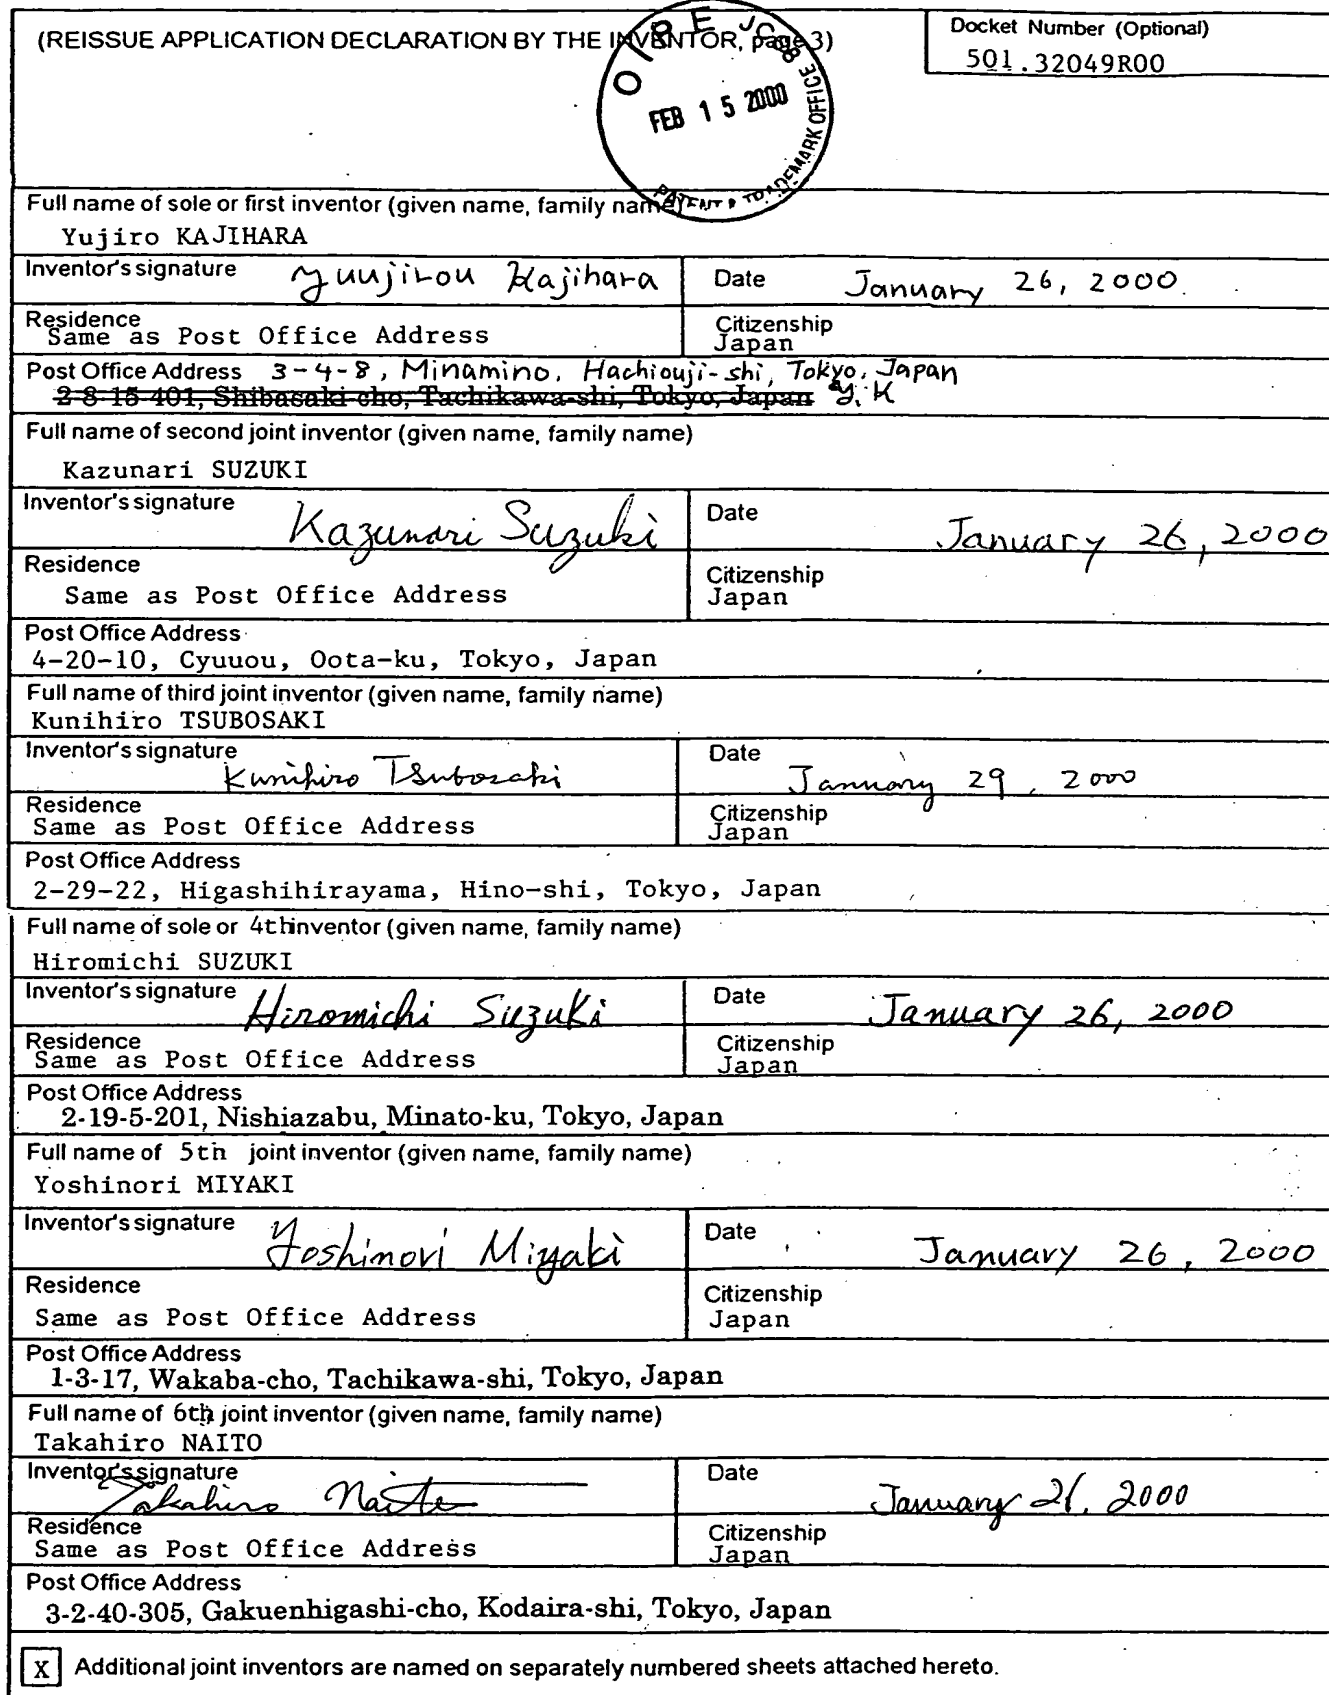 (REISSUE APPLICATION DECLARATION BY THE INVENTOR, page 3)
Docket Number (Optional)
501.32049R00
OIPE JC98
FEB 15 2000
PATENT & TRADEMARK OFFICE
Full name of sole or first inventor (given name, family name)
Yujiro KAJIHARA
Inventor's signature Yuujirou Kajihara Date January 26, 2000
Residence Citizenship
Same as Post Office Address Japan
Post Office Address 3-4-8, Minamino, Hachiouji-shi, Tokyo, Japan
2-8-15-401, Shibasaki-cho, Tachikawa-shi, Tokyo, Japan Y.K
Full name of second joint inventor (given name, family name)
Kazunari SUZUKI
Inventor's signature Kazunari Suzuki Date January 26, 2000
Residence Citizenship
Same as Post Office Address Japan
Post Office Address
4-20-10, Cyuuou, Oota-ku, Tokyo, Japan
Full name of third joint inventor (given name, family name)
Kunihiro TSUBOSAKI
Inventor's signature Kunihiro Tsubosaki Date January 29, 2000
Residence Citizenship
Same as Post Office Address Japan
Post Office Address
2-29-22, Higashihirayama, Hino-shi, Tokyo, Japan
Full name of sole or 4thinventor (given name, family name)
Hiromichi SUZUKI
Inventor's signature Hiromichi Suzuki Date January 26, 2000
Residence Citizenship
Same as Post Office Address Japan
Post Office Address
2-19-5-201, Nishiazabu, Minato-ku, Tokyo, Japan
Full name of 5th joint inventor (given name, family name)
Yoshinori MIYAKI
Inventor's signature Yoshinori Miyaki Date January 26, 2000
Residence Citizenship
Same as Post Office Address Japan
Post Office Address
1-3-17, Wakaba-cho, Tachikawa-shi, Tokyo, Japan
Full name of 6th joint inventor (given name, family name)
Takahiro NAITO
Inventor's signature Takahiro Naito Date January 2000
Residence Citizenship
Same as Post Office Address Japan
Post Office Address
3-2-40-305, Gakuenhigashi-cho, Kodaira-shi, Tokyo, Japan
X Additional joint inventors are named on separately numbered sheets attached hereto.